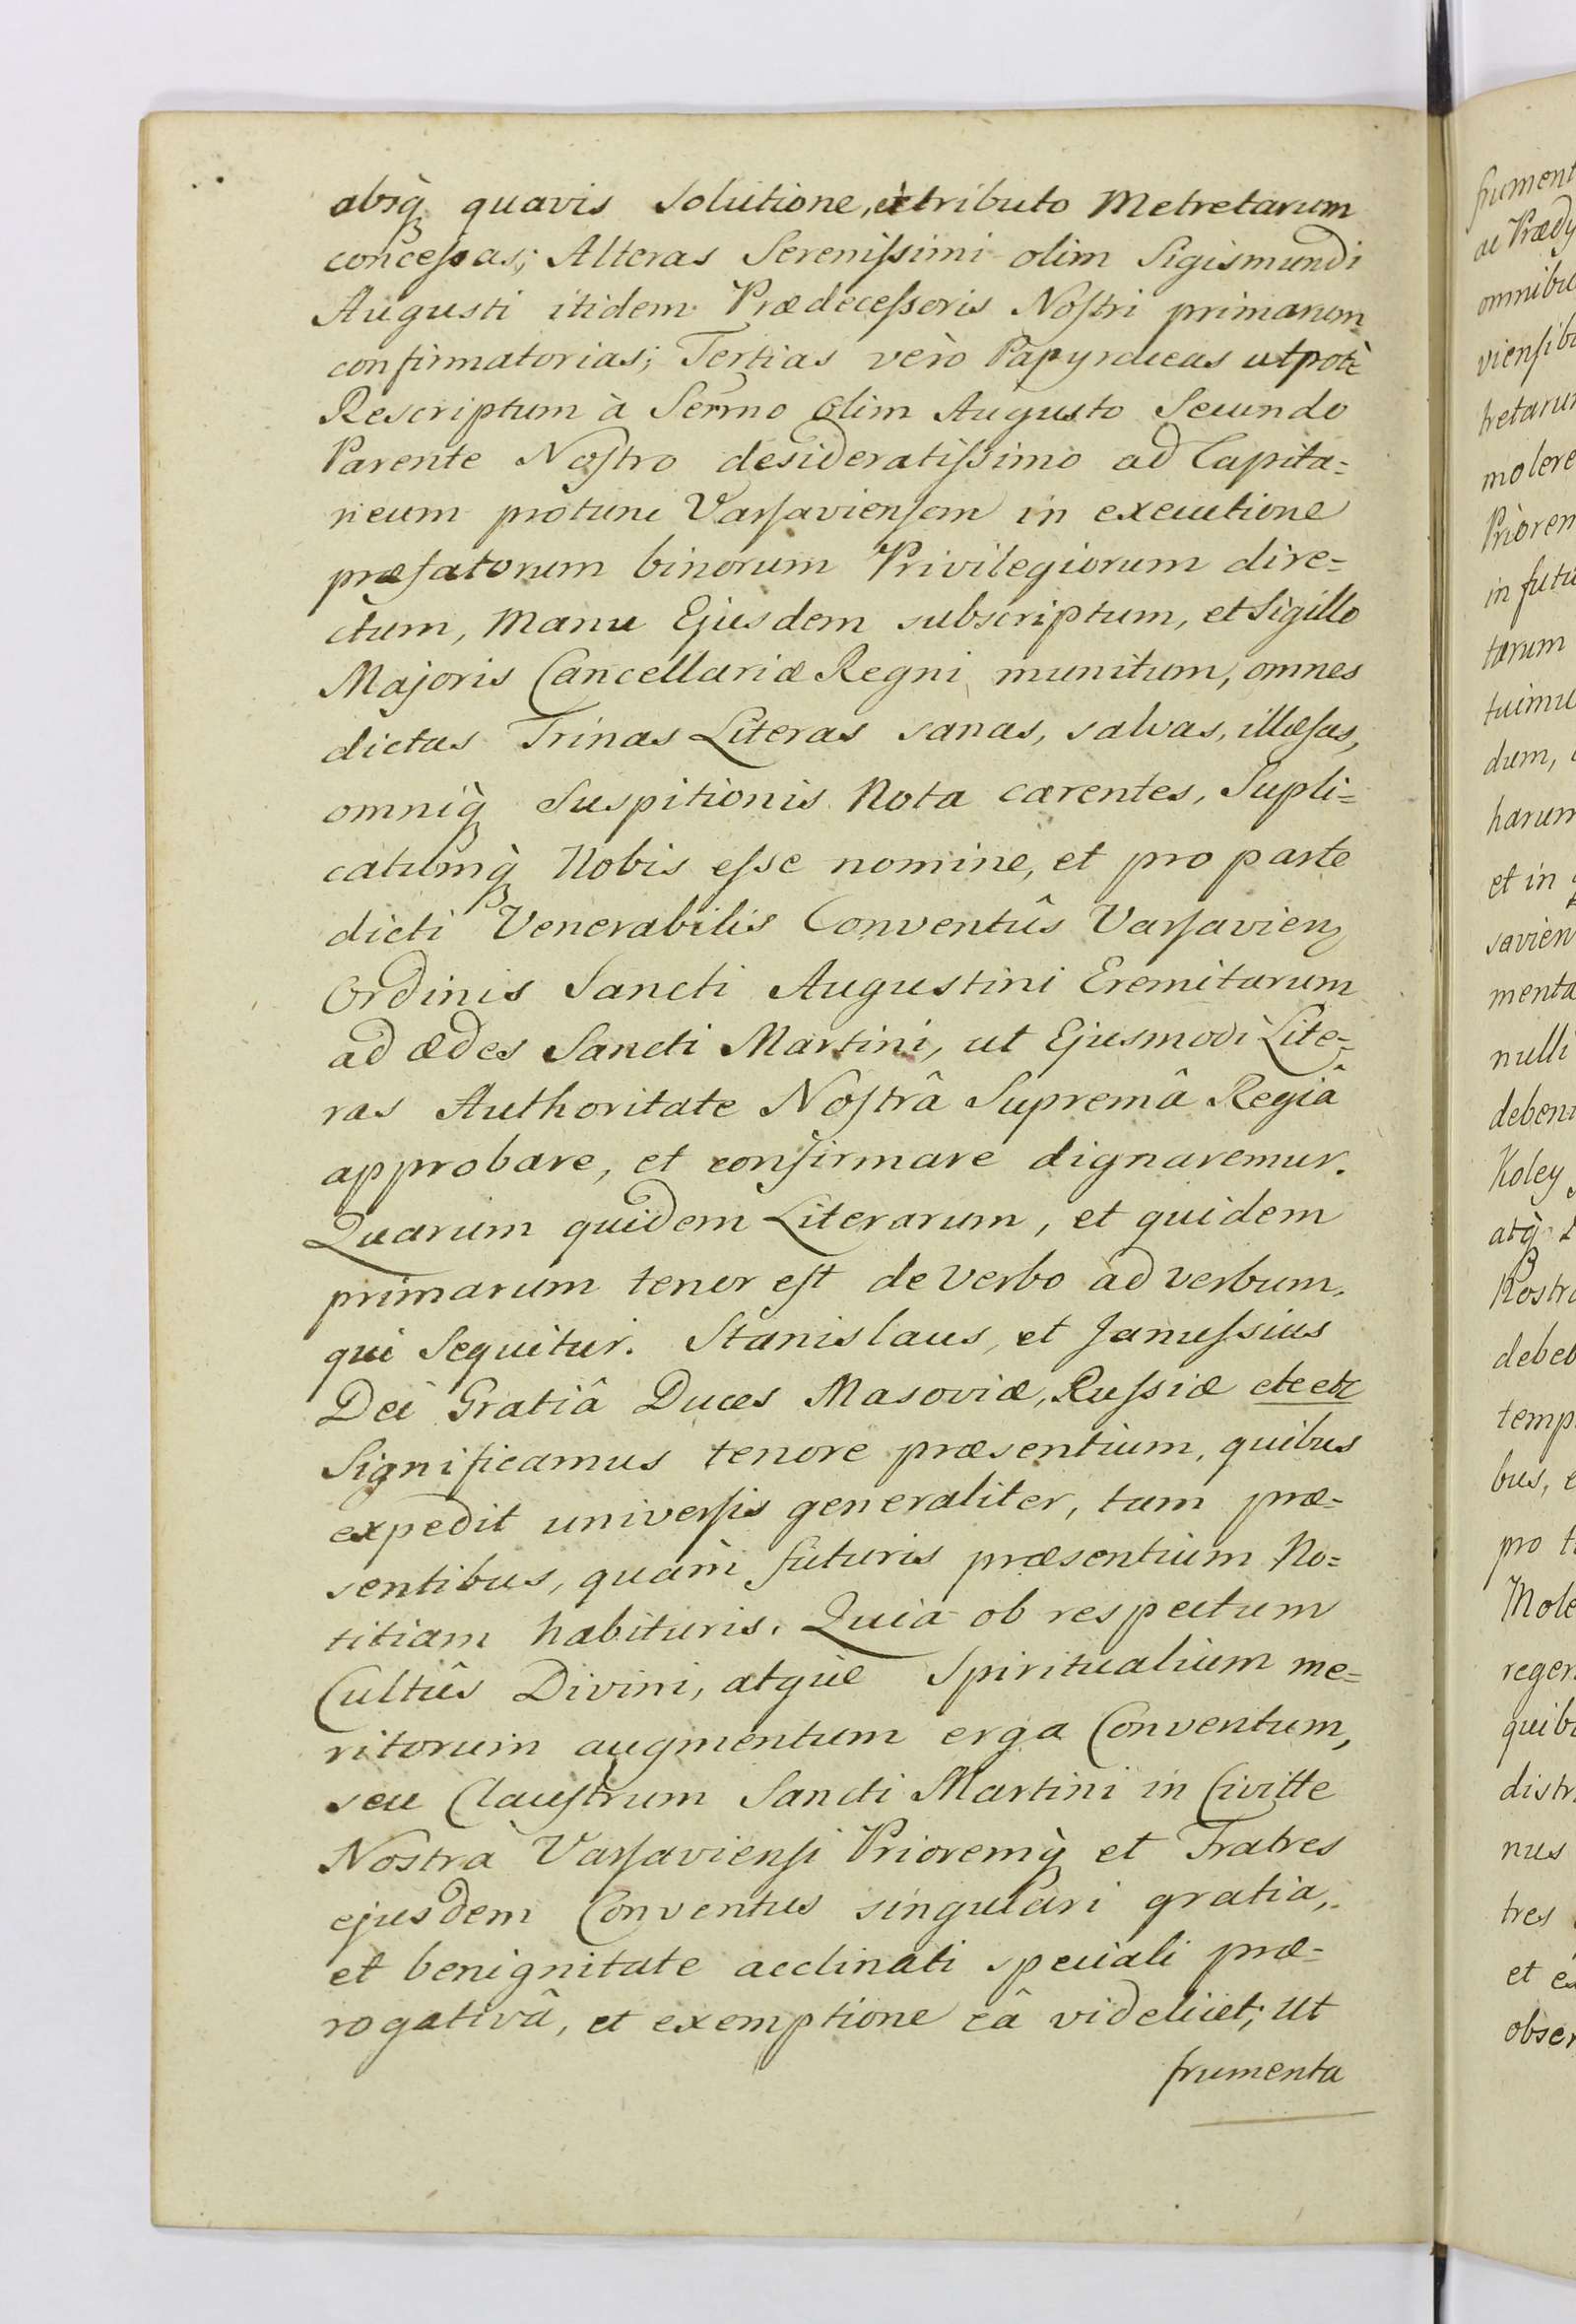 absq̀ quavis solutione, et tributo Metretarum
conceſsas; Alteras Sereniſsimi olim Sigismundi
Augusti itidem Prædeceſsoris Noſtri primarum
confirmatorias; Tertias verò Papyraceas utpotè
Rescriptum à Sermo Olim Augusto Secundo
Parente Noſtro desideratiſsimo ad Capita=
neum protunc Varſavienſem in executione
præfatorum binorum Privilegiorum dire=
ctum, Manu Ejusdem subscriptum, et Sigillo
Majoris Cancellariæ Regni munitum, omnes
dictas Trinas Literas sanas, salvas, illæſas,
omniq̀ Suspitionis Nota carentes, Supli=
catumq̀ Nobis eſse nomine, et pro parte
dicti Venerabilis Conventûs Varſavien
Ordinis Sancti Augustini Eremitarum
ad ædes Sancti Martini, ut Ejusmodi Lite=
ras Authoritate Noſtrâ Supremâ Regiâ
approbare, et confirmare dignaremur.
Quarum quidem Literarum, et quidem
primarum tenor eſt de verbo ad verbum,
qui Sequitur. Stanislaus, et Januſsius
Dei Gratiâ Duces Masoviæ, Ruſsiæ etc etc
Significamus tenore præsentium, quibus
expedit univerſis generaliter, tam præ=
sentibus, quàm futuris præsentium No=
titiam habituris. Quia ob respectum
Cultûs Divini, atque Spiritualium me=
ritorum augmentum erga Conventum,
seu Clauſtrum Sancti Martini in Civitte
Nostra Varſavienſi Prioremq̀ et Fratres
ejusdem Conventus singulari gratia,
et benignitate acclinati speciali præ=
rogativâ, et exemptione eâ videlicet; ut
frumenta
frument
ac Prædy
omnibu
vienſib
tretaru
molere
Prioren
in futu
tarum
tuimu
dum,
harum
et in
savien
menta
nulli
deben
Koley
atq̀
Nostr
debeb
temp
bus, e
pro t
Mole
regen
quib
distr
nus
tres
et e
obser